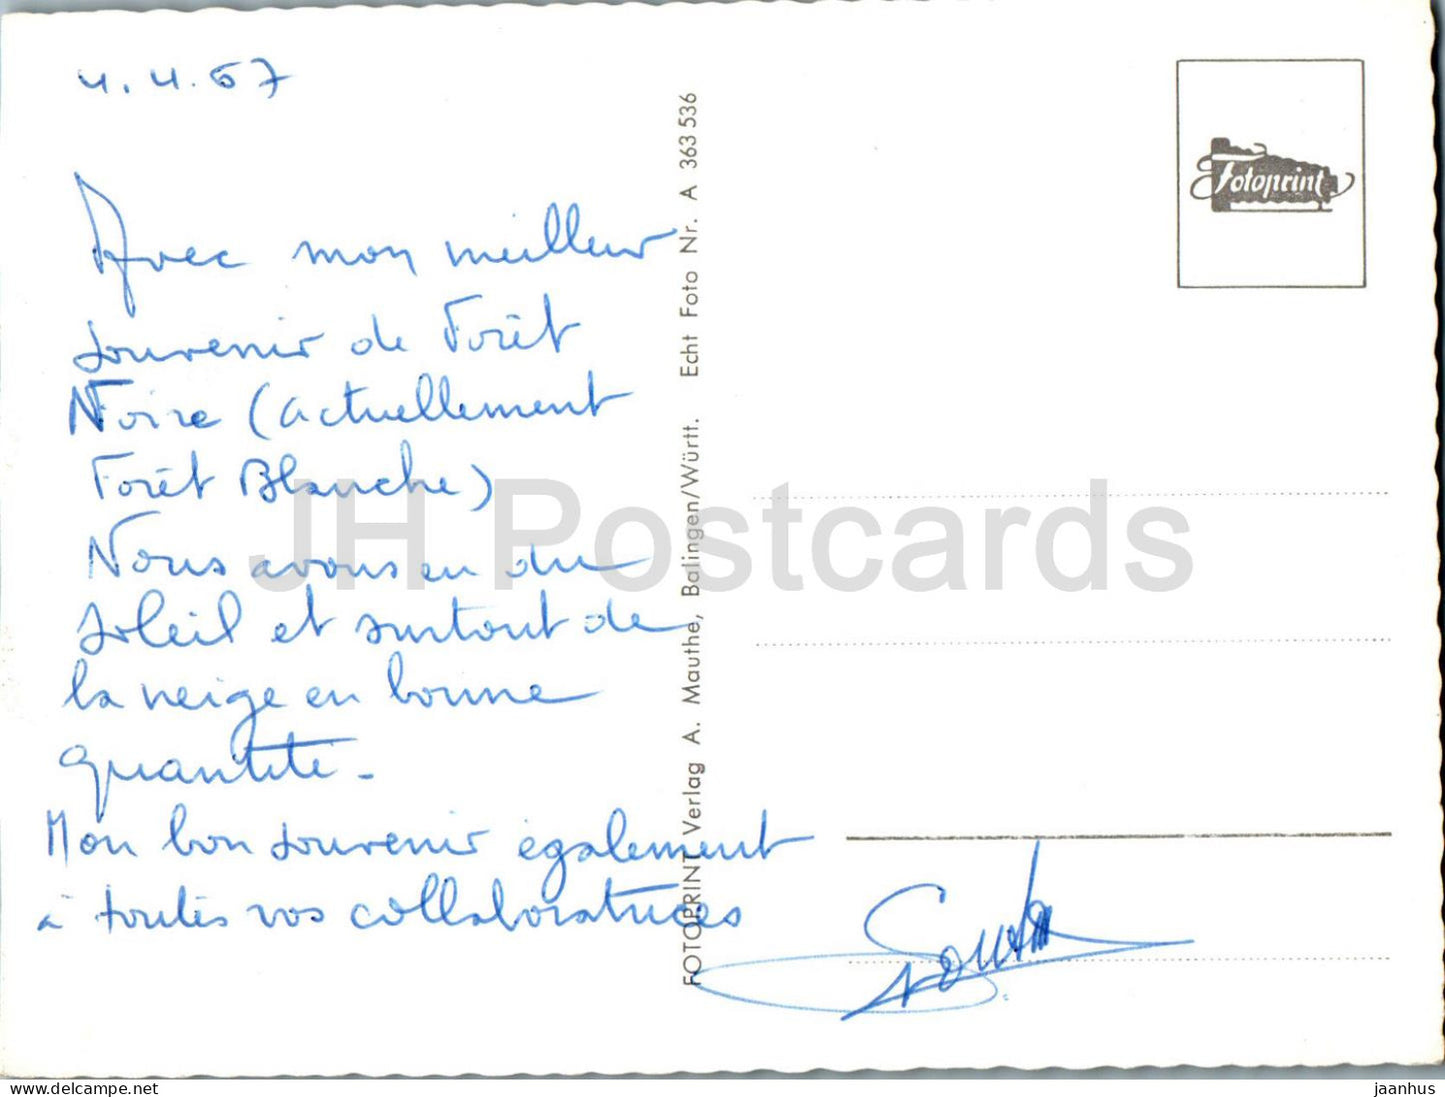 4.4.67
Avec mon meilleur
souvenir de Forêt
Noire (actuellement
Forêt Blanche)
Nous avons eu du
soleil et surtout de
la neige en bonne
quantité -
Mon bon souvenir également
à toutes vos collaboratrices
FOTOPRINT Verlag A. Mauthe, Balingen/Württ. Echt Foto Nr. A 363 536
Fotoprint
JH Postcards
www.delcampe.net
jaanhus